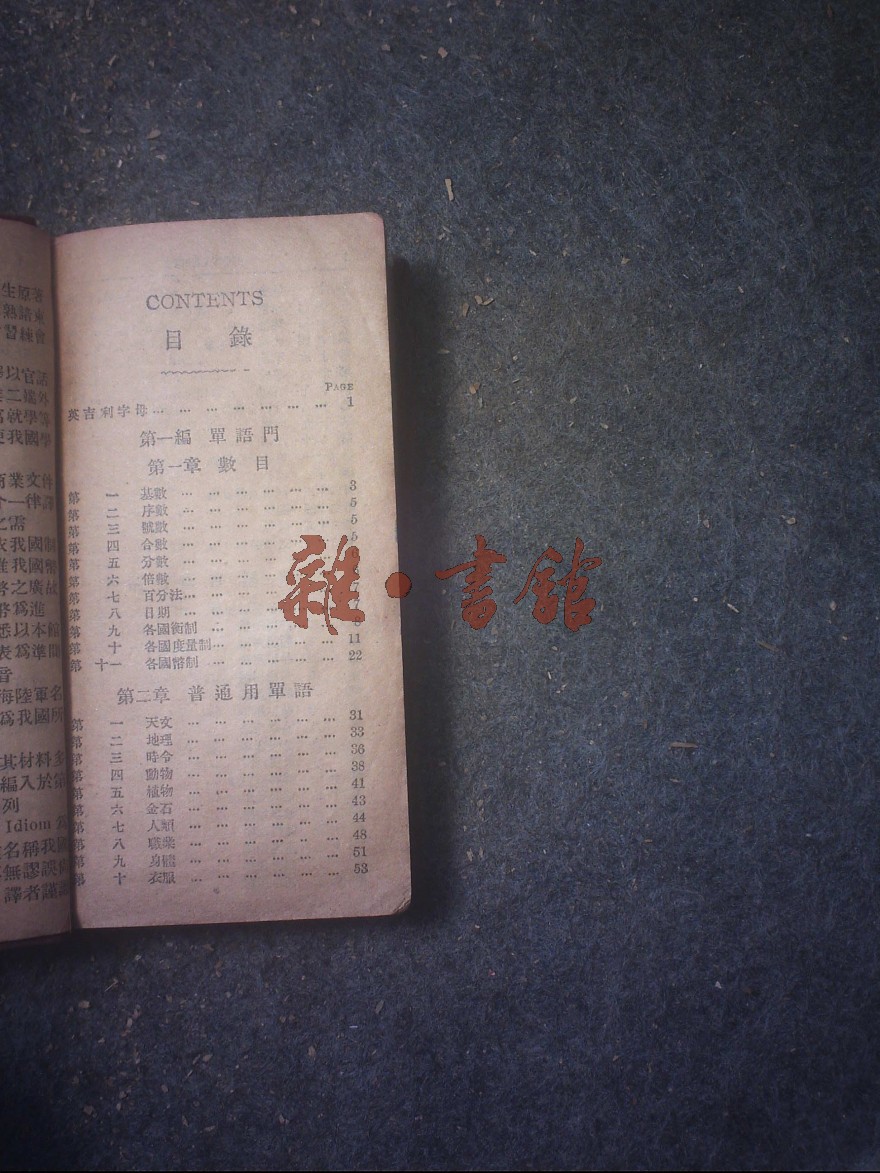 生原著
熟錯東
習練會
以官話
二場外
就學等
更我國學
商業文件
一律譯
之需
我國制
我國幣
之廣故
爲進
悉以本館
表爲準間
音
海陸軍名
爲我國所
其材料多
編入於第
列
Idiom
名稱我國
無謬誤
譯者謹識
CONTENTS
目錄
PAGE
英吉利字母 … … … … … … … 1
第一編 單語門
第一章 數目
第 一 基數 … … … … … … 3
第 二 序數 … … … … … … 5
第 三 號數 … … … … … … 5
第 四 合數 … … … … … … 5
第 五 分數 … … … … …
第 六 倍數 … … … … …
第 七 百分法 … … … … … … 7
第 八 日期 … … … … …
第 九 各國衡制 … … … … …
第 十 各國度量制 … … … … … 11
第 十一 各國幣制 … … … … … 22
第二章 普通用單語
第 一 天文 … … … … … … 31
第 二 地理 … … … … … … 33
第 三 時令 … … … … … … 36
第 四 動物 … … … … … … 38
第 五 植物 … … … … … … 41
第 六 金石 … … … … … … 43
第 七 人類 … … … … … … 44
第 八 職業 … … … … … … 48
第 九 身體 … … … … … … 51
第 十 衣服 … … … … … … 53
雜·書館